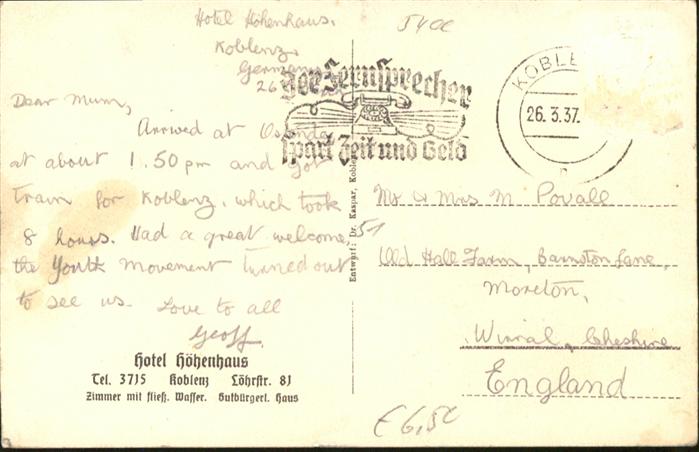 Hotel Höhenhaus,
Koblenz,
Germany
26
5400
Dear Mum,
Arrived at Ostende
at about 1.50 pm and got
train for Koblenz, which took
8 hours. Had a great welcome,
the Youth Movement turned out
to see us. Love to all
Geoff.
Hotel Höhenhaus
Tel. 3715 Koblenz Löhrstr. 81
Zimmer mit fließ. Wasser. Gutbürgerl. Haus
Entwurf: Dr. Kaspar, Koblenz
Der Fernsprecher
spart Zeit und Geld
KOBLE
26.3.37.
Mr & Mrs M Povall
51
Old Hall Farm, Barnston Lane,
Moreton,
Wirral, Cheshire
England
€ 6,50